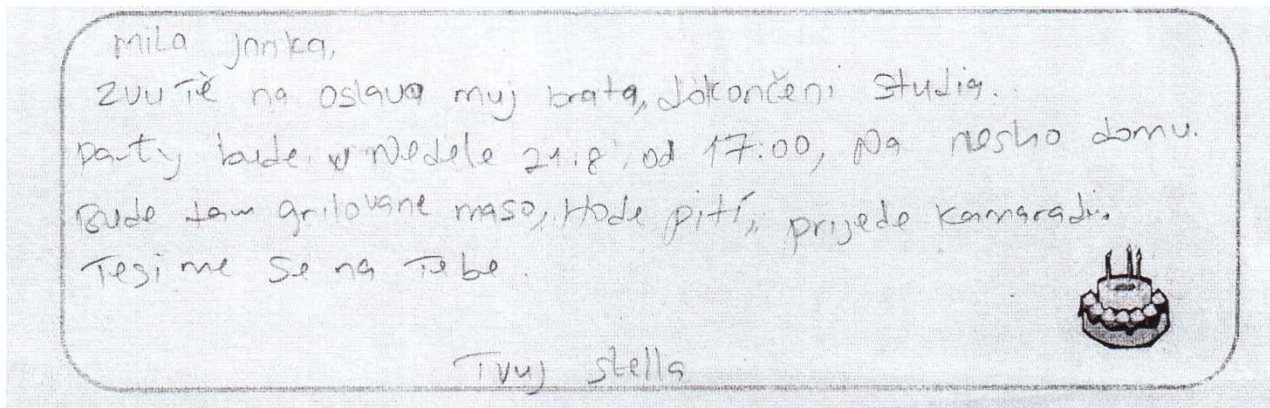 mila Janka,
Zvu Tě na oslava muj brata, dokončeni studia.
party bude v Nedele 21.8, od 17:00, Na nesho domu.
Bude tam grilovane maso, Hode pití, prijede kamaradi.
Tesi me se na Tebe.
Tvuj stella